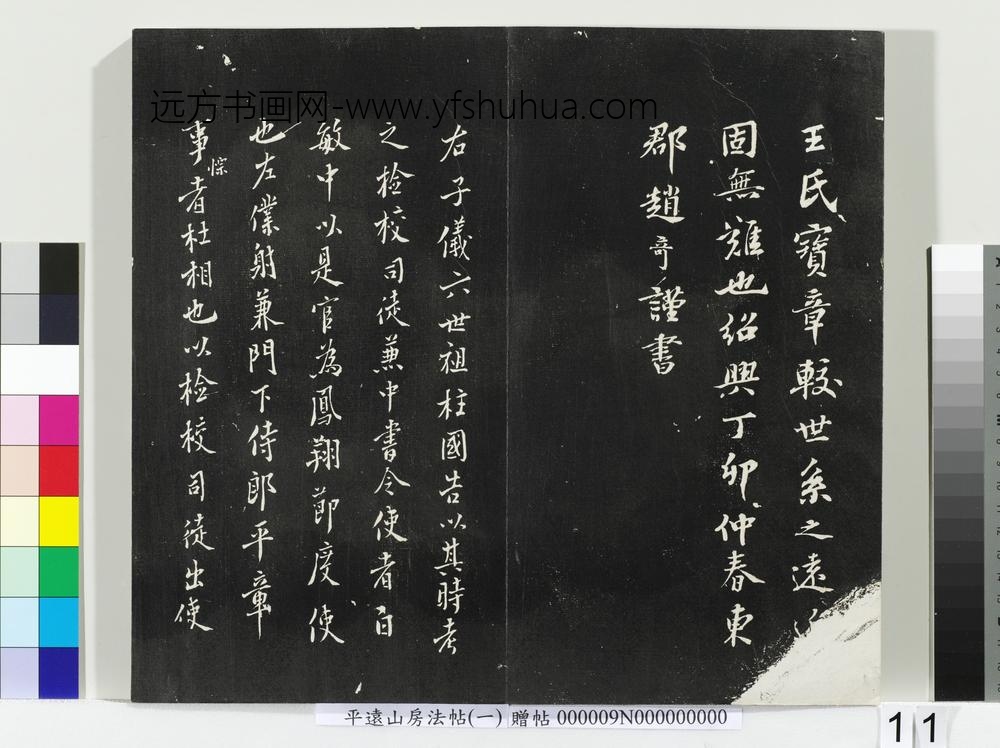 王氏寶章較世系之遠
固無難也紹興丁卯仲春東
郡趙奇謹書
右子儀六世祖柱國告以其時考
之檢校司徒兼中書令使者白
敏中以是官為鳳翔節度使
也左僕射兼門下侍郎平章
事悰者杜相也以檢校司徒出使
远方书画网-www.yfshuhua.com
平遠山房法帖(一) 贈帖 000009N000000000
11